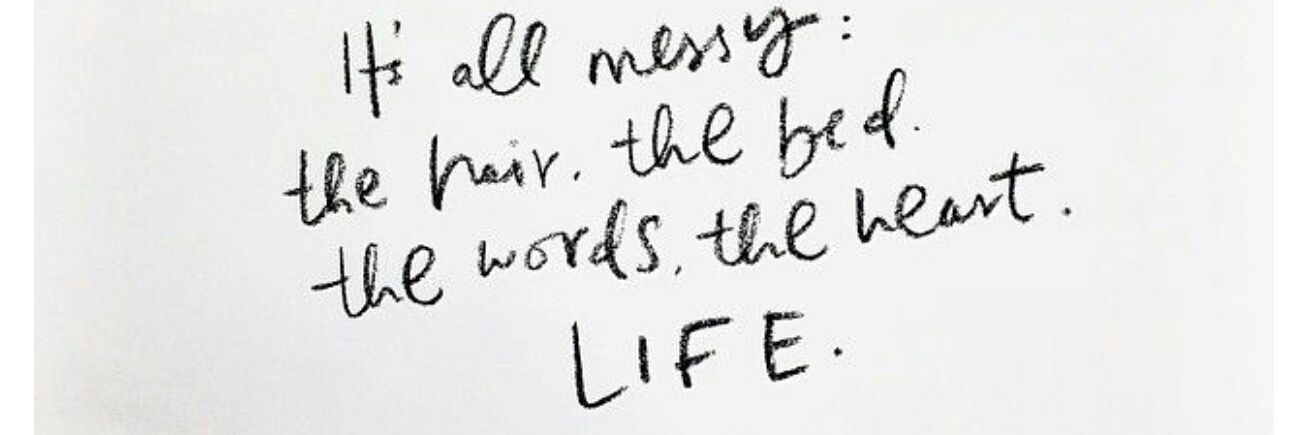 It's all messy:
the hair. the bed.
the words, the heart.
LIFE.